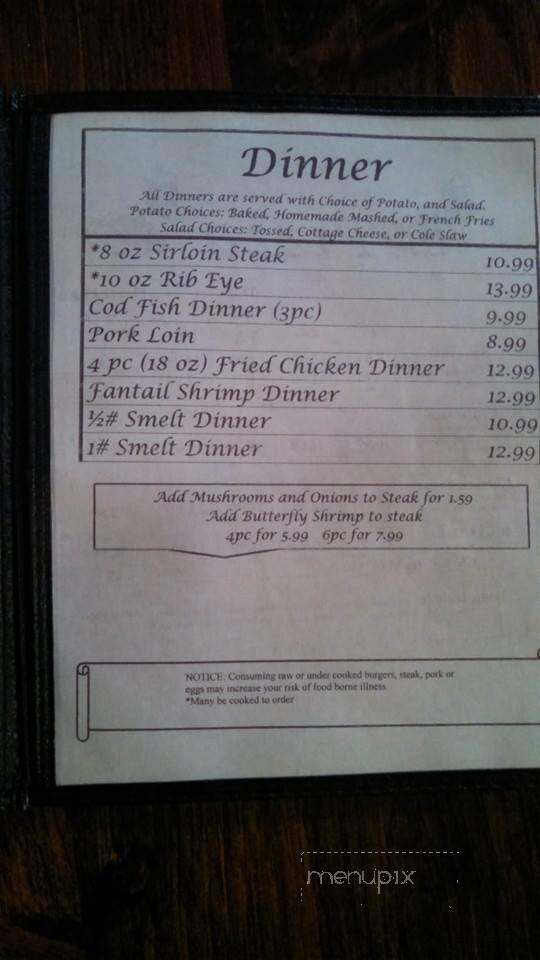 Dinner
All Dinners are served with Choice of Potato, and Salad.
Potato Choices: Baked, Homemade Mashed, or French Fries
Salad Choices: Tossed, Cottage Cheese, or Cole Slaw
*8 oz Sirloin Steak 10.99
*10 oz Rib Eye 13.99
Cod Fish Dinner (3pc) 9.99
Pork Loin 8.99
4 pc (18 oz) Fried Chicken Dinner 12.99
Fantail Shrimp Dinner 12.99
½# Smelt Dinner 10.99
1# Smelt Dinner 12.99
Add Mushrooms and Onions to Steak for 1.59
Add Butterfly Shrimp to steak
4pc for 5.99 6pc for 7.99
NOTICE: Consuming raw or under cooked burgers, steak, pork or
eggs may increase your risk of food borne illness
*Many be cooked to order
menupix